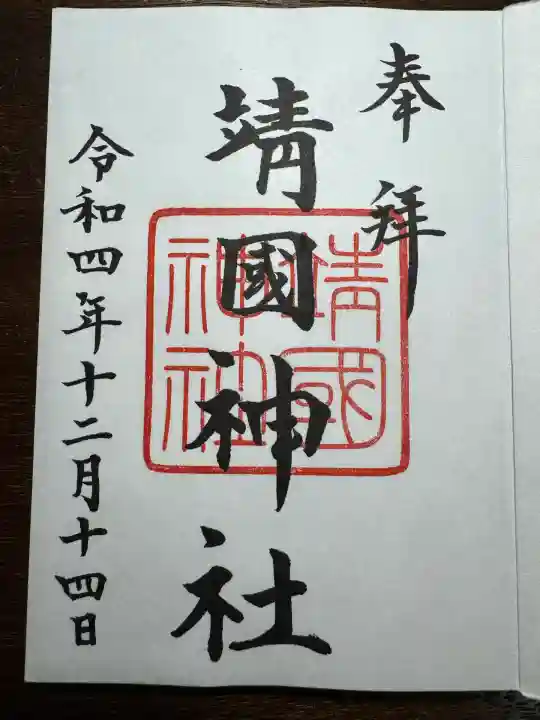 奉拝
靖國神社
靖國神社
令和四年十二月十四日